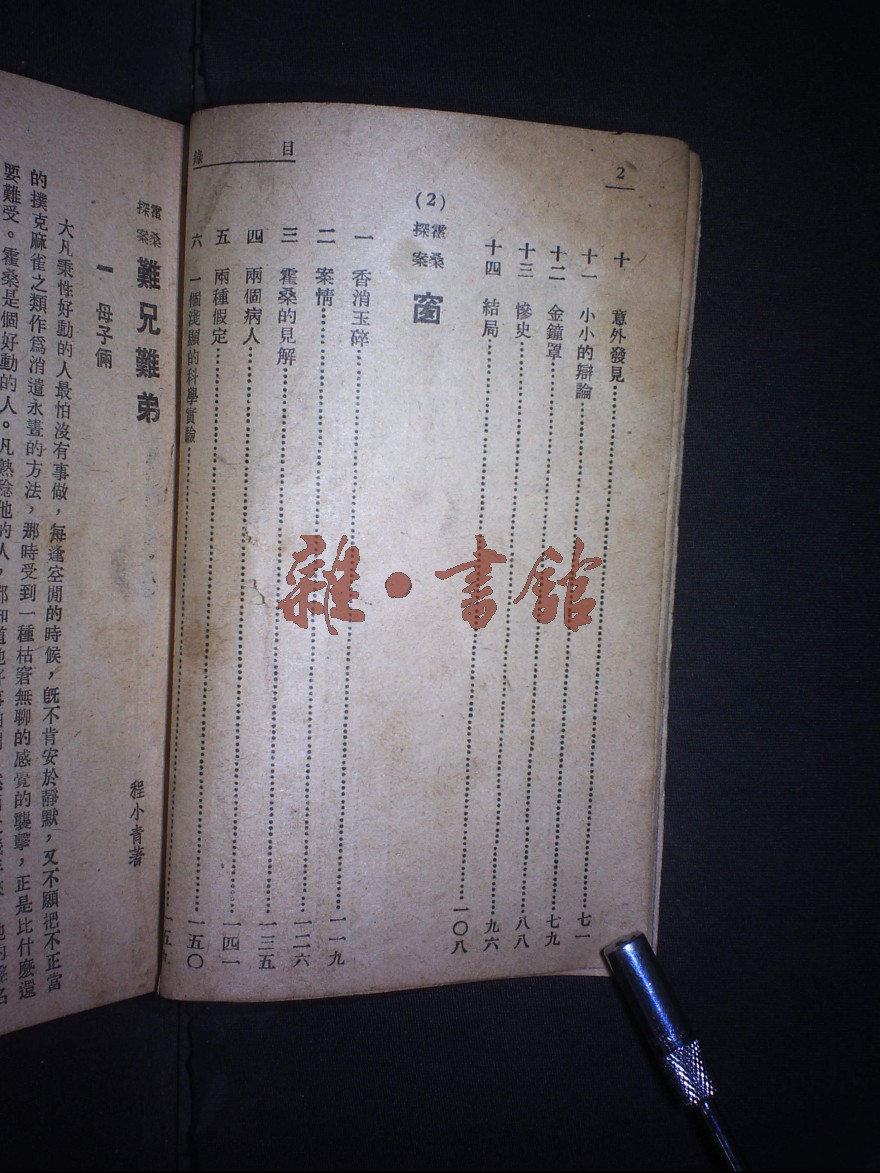 2
目錄
十 意外發見……七一
十一 小小的辯論……七九
十二 金鐘罩……八八
十三 慘史……九六
十四 結局……一〇八
(2)
霍桑探案 窗
一 香消玉碎……一一九
二 案情……一二六
三 霍桑的見解……一三五
四 兩個病人……一四一
五 兩種假定……一五〇
六 一個淺顯的科學實驗……一五
霍桑探案 難兄難弟
程小青著
一 母子倆
大凡秉性好動的人最怕沒有事做，每逢空閒的時候，既不肯安於靜默，又不願把不正當
的撲克麻雀之類作爲消遣永晝的方法，那時受到一種枯窘無聊的感覺的襲擊，正是比什麼還
要難受。霍桑是個好動的人。凡熟
雜·書館